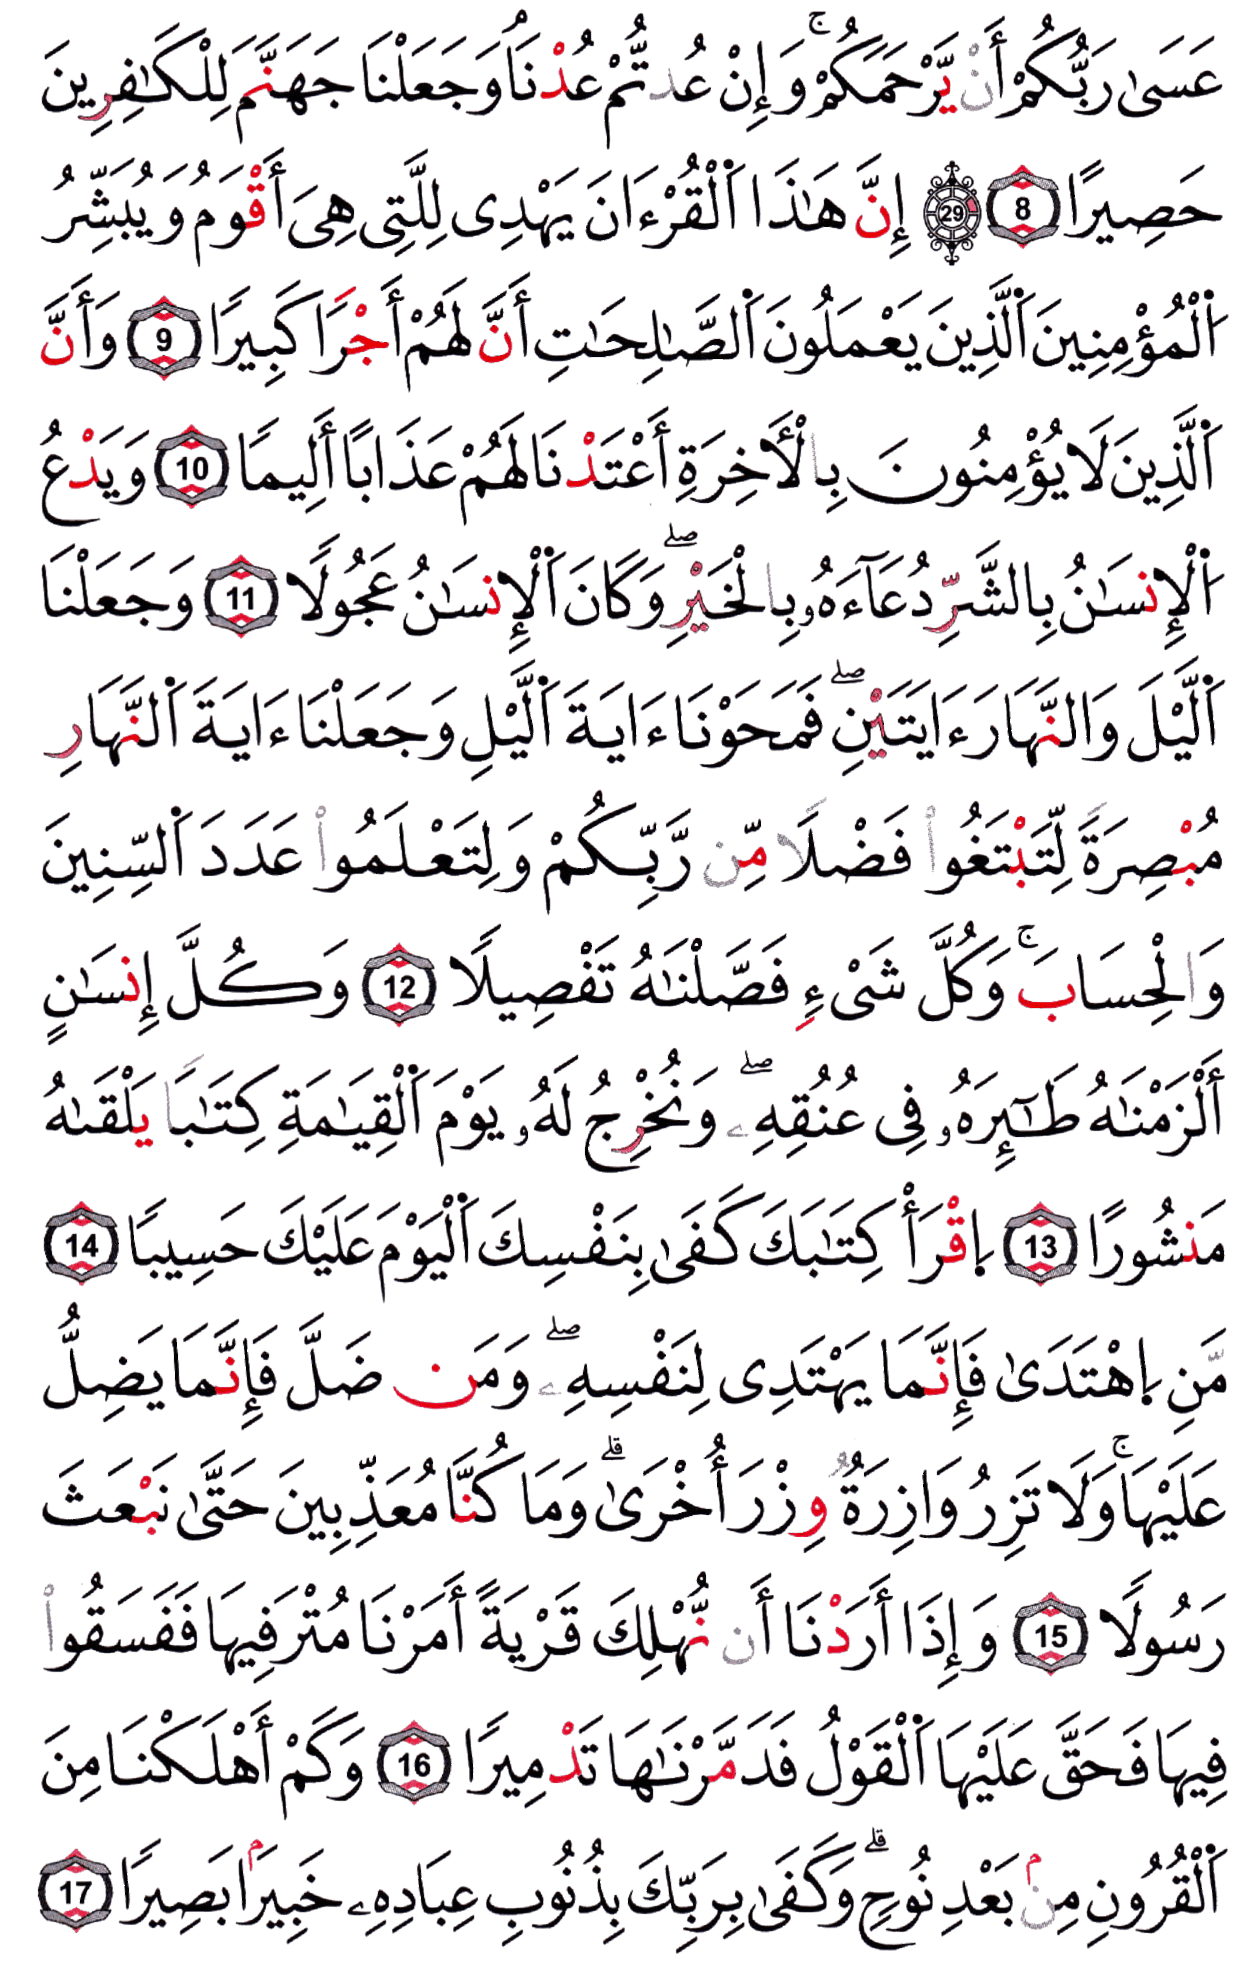 عَسَىٰ رَبُّكُمْ أَنْ يَّرْحَمَكُمْ ۚ وَإِنْ عُدتُّمْ عُدْنَا ۘ وَجَعَلْنَا جَهَنَّمَ لِلْكَٰفِرِينَ
حَصِيرًا 8 29 إِنَّ هَٰذَا اَ۬لْقُرْءَانَ يَهْدِى لِلَّتِى هِىَ أَقْوَمُ وَيُبَشِّرُ
اُ۬لْمُؤْمِنِينَ اَ۬لَّذِينَ يَعْمَلُونَ اَ۬لصَّٰلِحَٰتِ أَنَّ لَهُمْ أَجْرًا كَبِيرًا 9 وَأَنَّ
اَ۬لَّذِينَ لَا يُؤْمِنُونَ بِالْأَخِرَةِ أَعْتَدْنَا لَهُمْ عَذَابًا أَلِيمًا 10 وَيَدْعُ
اُ۬لْإِنسَٰنُ بِالشَّرِّ دُعَآءَهُۥ بِالْخَيْرِ ۖ وَكَانَ اَ۬لْإِنسَٰنُ عَجُولًا 11 وَجَعَلْنَا
اَ۬لَّيْلَ وَالنَّهَارَ ءَايَتَيْنِ ۖ فَمَحَوْنَا ءَايَةَ اَ۬لَّيْلِ وَجَعَلْنَا ءَايَةَ اَ۬لنَّهَارِ
مُبْصِرَةً لِّتَبْتَغُواْ فَضْلًا مِّن رَّبِّكُمْ وَلِتَعْلَمُواْ عَدَدَ اَ۬لسِّنِينَ
وَالْحِسَابَ ۚ وَكُلَّ شَىْءٍ فَصَّلْنَٰهُ تَفْصِيلًا 12 وَكُلَّ إِنسَٰنٍ
أَلْزَمْنَٰهُ طَٰٓئِرَهُۥ فِى عُنُقِهِۦ ۖ وَنُخْرِجُ لَهُۥ يَوْمَ اَ۬لْقِيَٰمَةِ كِتَٰبًا يَلْقَىٰهُ
مَنشُورًا 13 اِ۪قْرَأْ كِتَٰبَكَ كَفَىٰ بِنَفْسِكَ اَ۬لْيَوْمَ عَلَيْكَ حَسِيبًا 14
مَّنِ اِ۪هْتَدَىٰ فَإِنَّمَا يَهْتَدِى لِنَفْسِهِۦ ۖ وَمَن ضَلَّ فَإِنَّمَا يَضِلُّ
عَلَيْهَا ۚ وَلَا تَزِرُ وَازِرَةٌ وِزْرَ أُخْرَىٰ ۗ وَمَا كُنَّا مُعَذِّبِينَ حَتَّىٰ نَبْعَثَ
رَسُولًا 15 وَإِذَا أَرَدْنَا أَن نُّهْلِكَ قَرْيَةً أَمَرْنَا مُتْرَفِيهَا فَفَسَقُواْ
فِيهَا فَحَقَّ عَلَيْهَا اَ۬لْقَوْلُ فَدَمَّرْنَٰهَا تَدْمِيرًا 16 وَكَمْ أَهْلَكْنَا مِنَ
اَ۬لْقُرُونِ مِنۢ بَعْدِ نُوحٍ ۗ وَكَفَىٰ بِرَبِّكَ بِذُنُوبِ عِبَادِهِۦ خَبِيرَۢا بَصِيرًا 17